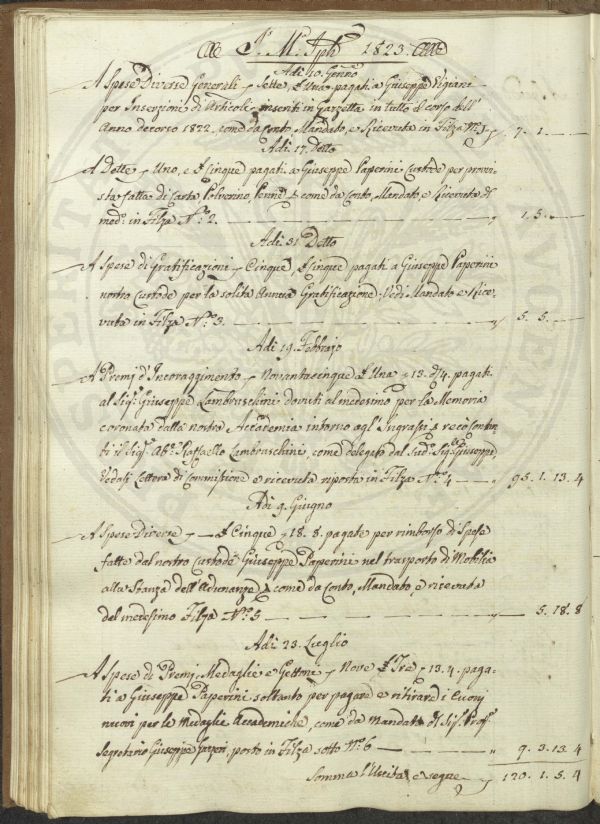 J. M. Jph. 1823.
Adi 10. Genno
A Spese Diverse Generali Sette, £ Una pagati a Giuseppe Vigiani
per Inserzione di Articoli inseriti in Gazzetta in tutto il corso dell'
Anno decorso 1822, come da Conto, Mandato, e Ricevuta in Filza N.° 1 7. 1.
Adi 17. Detto
A Dette Uno, e £ Cinque pagati a Giuseppe Paperini Custode per provvi-
sta fatta di Carta Polverino, Penne & come da Conto, Mandato, e Ricevuta del
med.° in Filza N.° 2. 1. 5.
Adi 31. Detto
A Spese di Gratificazioni Cinque, £ Cinque pagati a Giuseppe Paperini
nostro Custode per la solita Annua Gratificazione. Vedi Mandato e Rice-
vuta in Filza N.° 3. 5. 5.
Adi 19. Febbrajo
A Premj d'Incoraggimento Novantacinque £ Una 13. d 4. pagati
al Sig.r Giuseppe Lambruschini dovuti al medesimo per la Memoria
coronata dalla nostra Accademia intorno agl'Ingrassi, e
ti il Sig.r Ab.e Raffaello Lambruschini, come delegato dal Sud.° Sig.r Giuseppe,
Vedasi Lettera di Commissione e ricevuta riposta in Filza N.° 4 95. 1. 13. 4
Adi 9. Giugno
A Spese Diverse £ Cinque 18. 8. pagate per rimborso di Spese
fatte dal nostro Custode Giuseppe Paperini nel trasporto di Mobilia
alla Stanza dell'Adunanze & come da Conto, Mandato, e ricevuta
del medesimo Filza N.° 5 5. 18. 8
Adi 23. Luglio
A Spese di Premj, Medaglie e Gettoni Nove £ Tre 13. 4. paga-
ti a Giuseppe Paperini soltanto per pagare e ritirare i Cuonj
nuovi per le Medaglie Accademiche, come da Mandato del Sig.r Prof.e
Segretario Giuseppe posto in Filza sotto N.° 6 9. 3. 13. 4
Somma l'Uscita e segue 120. 1. 5. 4